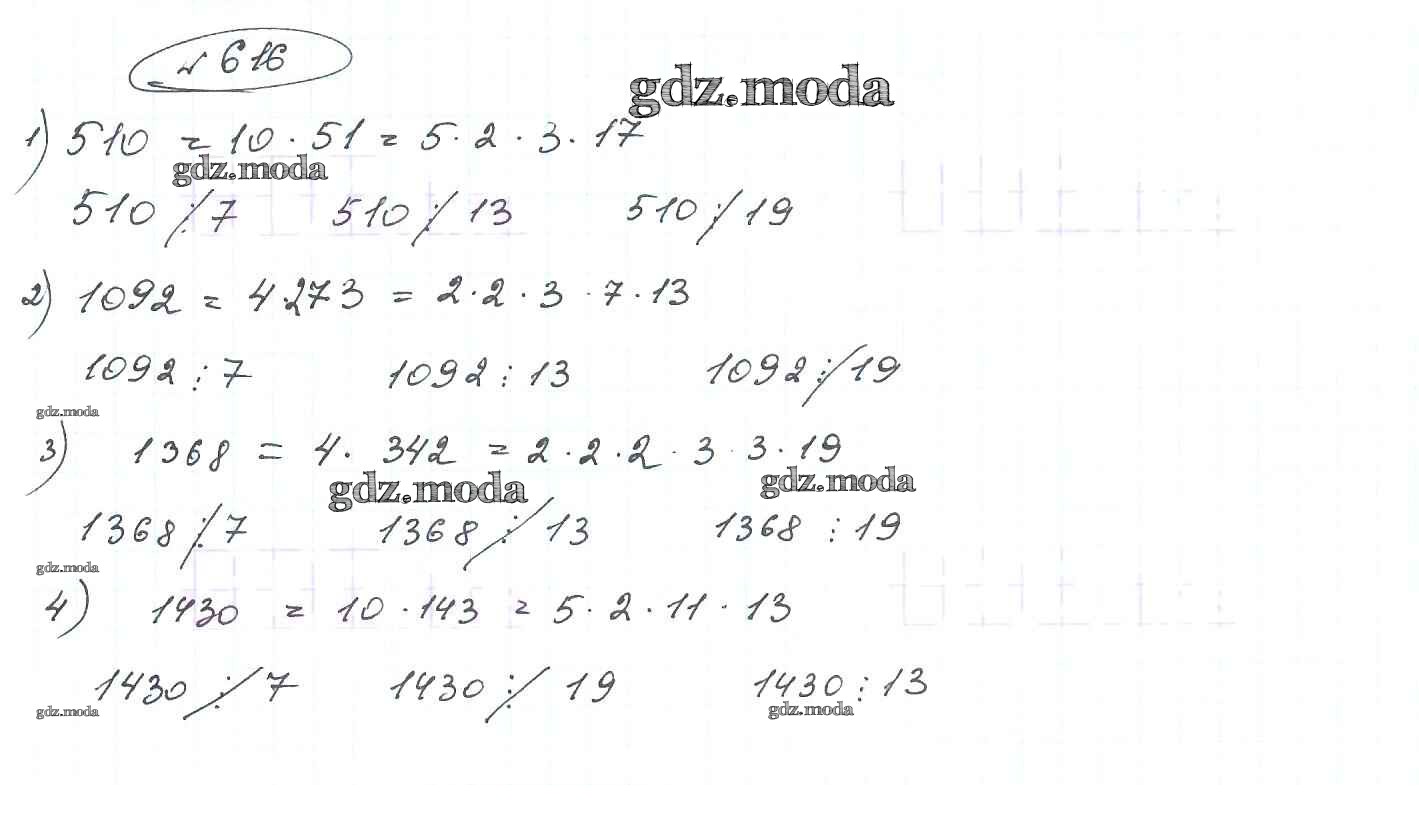 № 616
gdz.moda
1) 510 = 10 · 51 = 5 · 2 · 3 · 17
gdz.moda
510 ⋮̸ 7 510 ⋮̸ 13 510 ⋮̸ 19
2) 1092 = 4·273 = 2·2·3·7·13
1092 ⋮ 7 1092 ⋮ 13 1092 ⋮̸ 19
gdz.moda
3) 1368 = 4· 342 = 2·2·2·3·3·19
gdz.moda gdz.moda
1368 ⋮̸ 7 1368 ⋮̸ 13 1368 ⋮ 19
gdz.moda
4) 1430 = 10 · 143 = 5 · 2 · 11 · 13
1430 ⋮̸ 7 1430 ⋮̸ 19 1430 ⋮ 13
gdz.moda gdz.moda